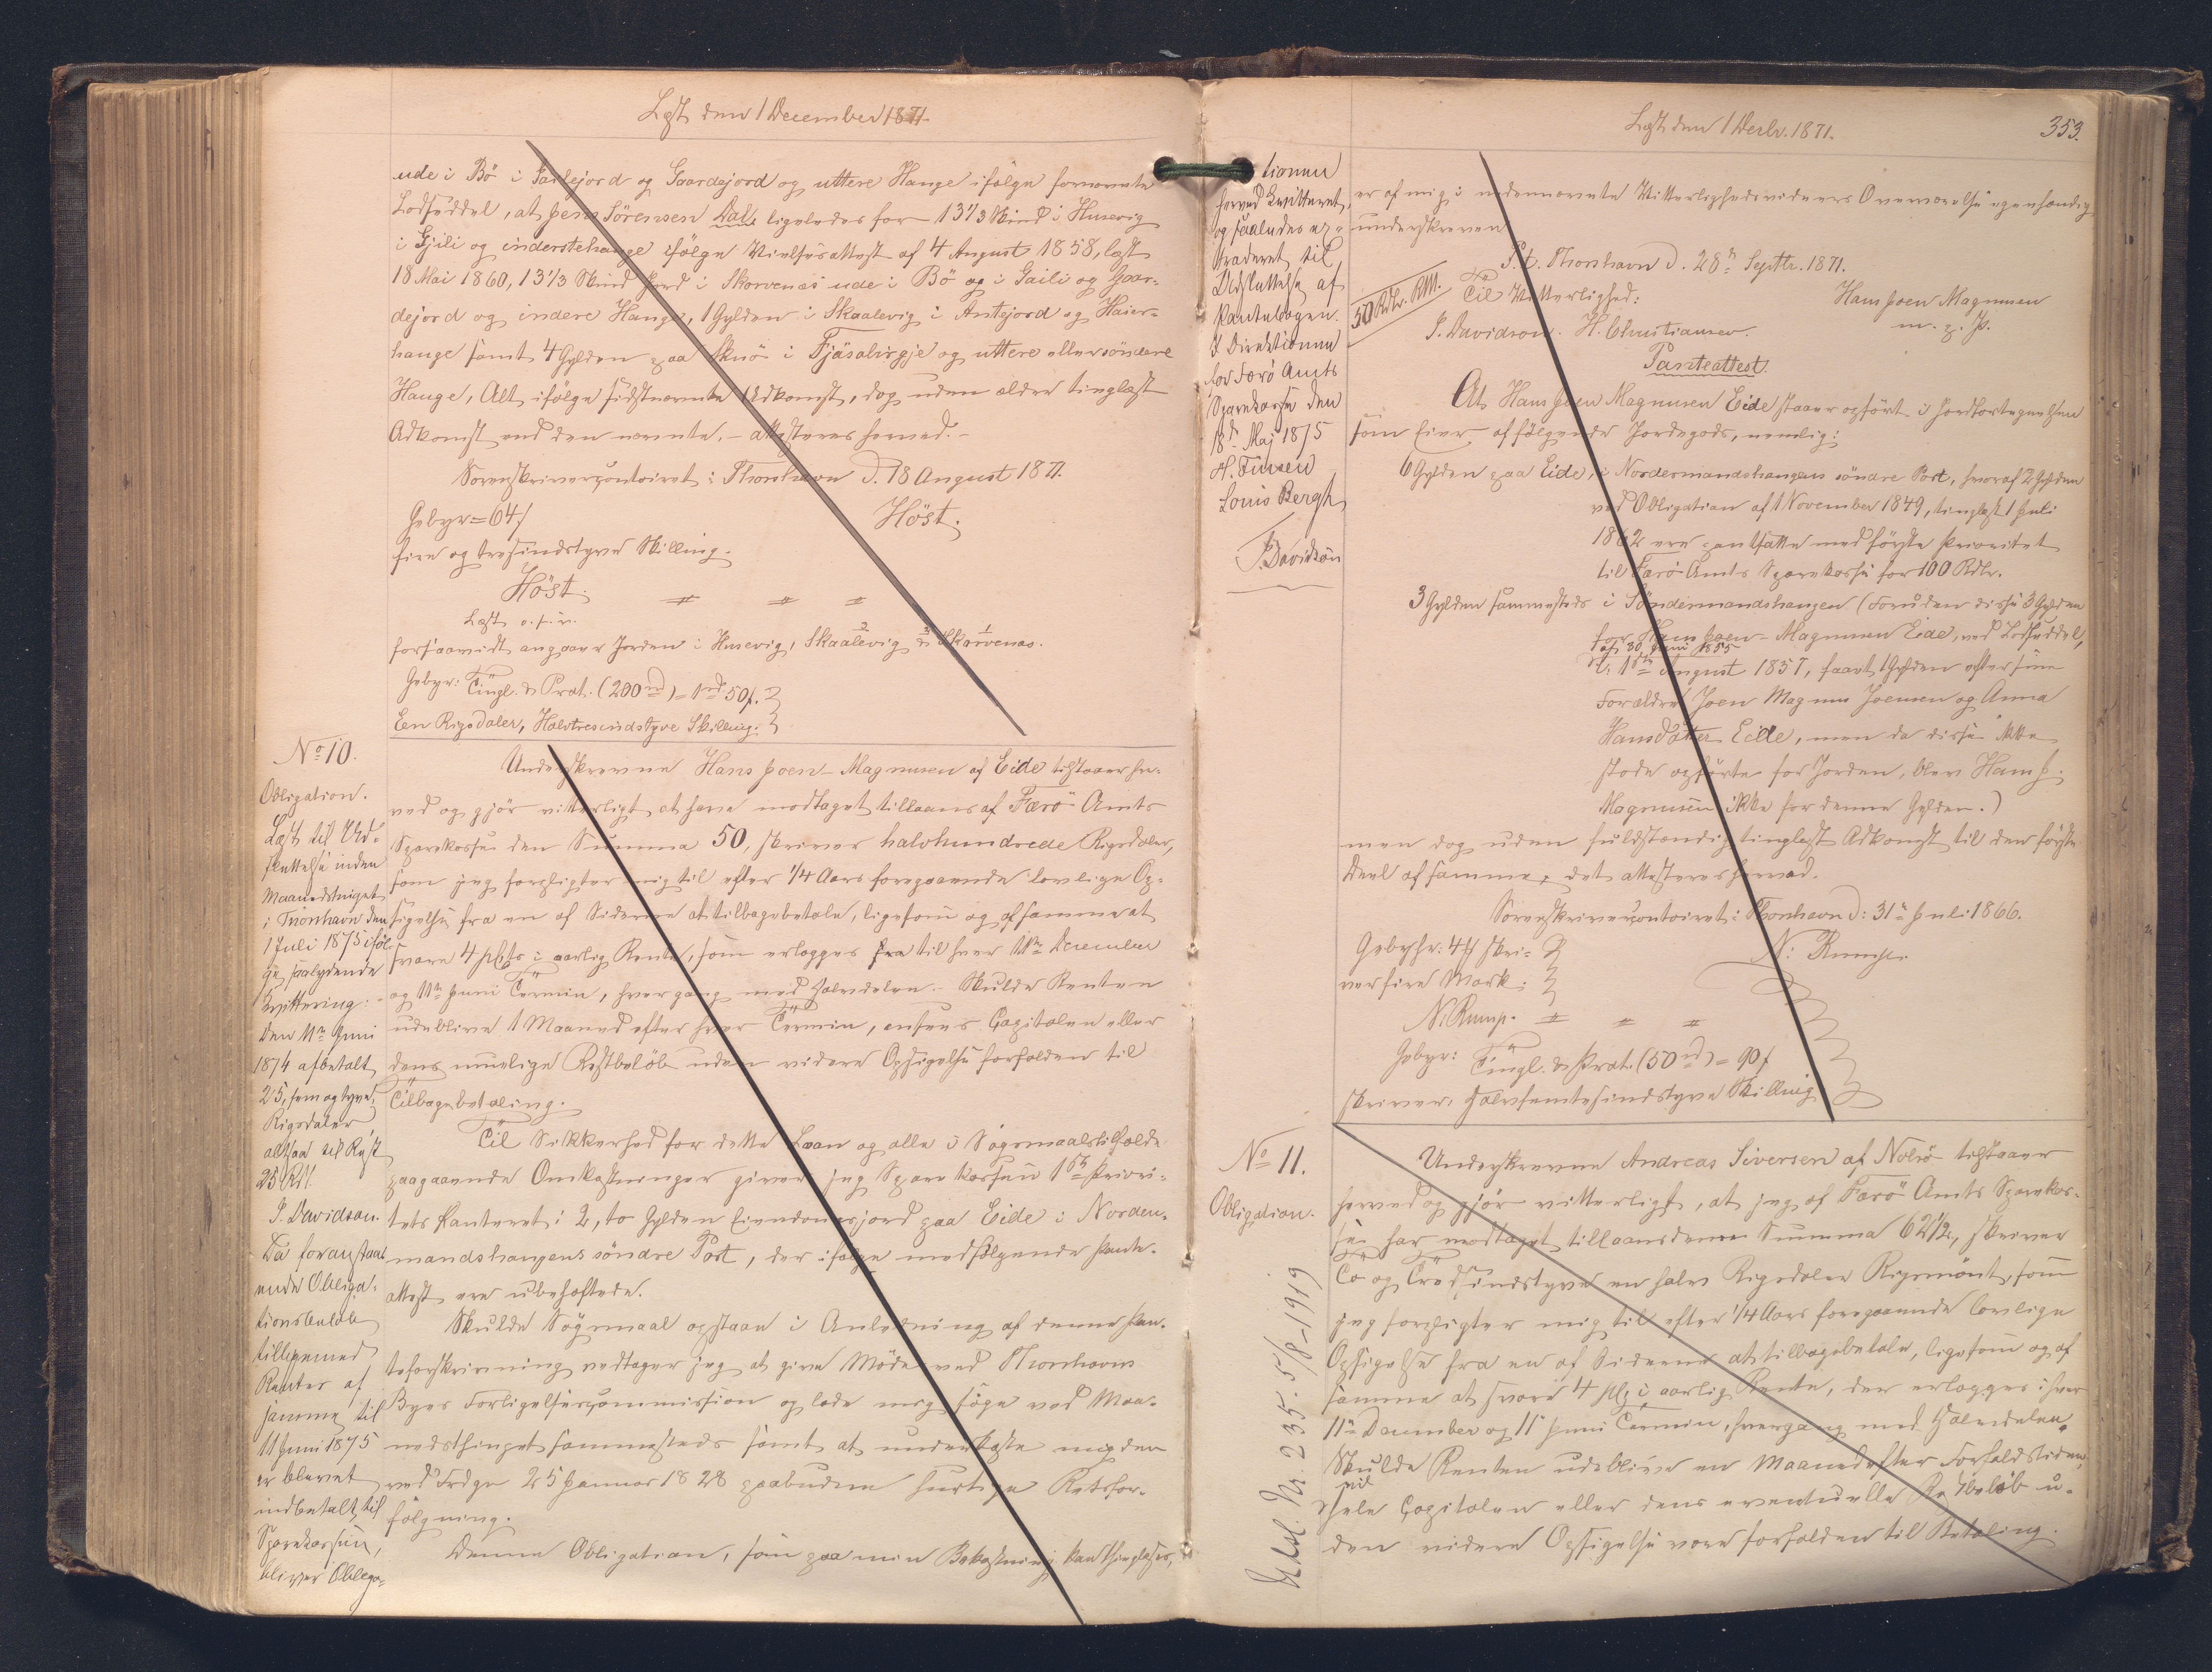 Læst den 1 December 1871.
ude i Bö i Garsejord og Gaardejord og uttere Hange ifølge fornævnte
Lodseddel, at Jens Sörensen Dal ligeledes for 13 1/3 Skind i Husevig
i Gjili og inderstehange ifølge Vielsesattest af 4 August 1858, læst
18 Mai 1860, 13 1/3 Skind Jord i Skorvenæs ude i Bö og i Gaili og Gaar-
dejord og indere Hange, 1 Gylden i Skaalevig i Antejord og Haier-
hauge samt 4 Gylden paa Skuö i Fjäsabirgje og uttere eller söndere
Hauge, Alt ifølge sidstnævnte Adkomst, dog uden ældre tinglæst
Adkomst end den nævnte, - attesteres herved. -
Sorenskrivercontoiret i Thorshavn d. 18 August 1871.
Gebyr = 64 f
Höst.
fire og tresindstyve Skilling.
Höst.
Læst o. s. v.
forsaavidt angaaer Jorden i Husevig, Skaalevig & Skorvenæs.
Gebyr: Tingl. & Prot. (200 rd) = 1 rd 50 f.
Een Rigsdaler, Halvtresindstyve Skilling.
No 10.
Obligation.
Læst til Ud-
slettelse inden
Maanedstinget
i Thorshavn den
1 Juli 1875 iføl-
ge saalydende
Kvittering:
Den 11te Juni
1874 afbetalt
25, fem og tyve,
Rigsdaler
altsaa til Rest
25 Rdl.
J. Davidson.
Da foranstaa-
ende Obliga-
tionsbeløb
tilligemed
Renter af
samme til
11 Juni 1875
er blevet
indbetalt til
Sparekassen,
bliver Obliga-
Underskrevne Hans Joen Magnusen af Eide tilstaaer her-
ved og gjör vitterligt at have modtaget tillaans af Færö Amts
Sparekasse den Summa 50, skriver halvhundrede Rigsdaler,
som jeg forpligter mig til efter 1/4 Aars foregaaende lovlige Op-
sigelse fra en af Siderne at tilbagebetale, ligesom og af samme at
svare 4 pCto i aarlig Rente, som erlægges fra til hver 11te December
og 11te Juni Termin, hver gang med Halvdelen. - Skulde Renten
udeblive 1 Maaned efter hver Termin, ansees Capitalen eller
dens muelige Restbelöb uden videre Opsigelse forfalden til
Tilbagebetaling.
Til Sikkerhed for dette Laan og alle i Søgsmaalstilfælde
paagaaende Omkostninger giver jeg Sparekassen 1ste Priori-
tets Panteret i 2, to Gylden Eiendomsjord paa Eide i Norden-
mandshangens söndre Part, der ifølge medfølgende Pante-
attest ere ubehæftede.
Skulde Sögsmaal opstaae i Anledning af denne Pan-
teforskrivning vedtager jeg at give Möde ved Thorshavns
Byes Forligelsescommission og lade mig søge ved Maa-
nedsthinget sammesteds samt at underkaste mig den
ved Frdgn 25 Januar 1828 paabudne hurtige Retsfor-
følgning.
Denne Obligation, som paa min Bekostning kan thinglæses,
Læst den 1 Decbr. 1871.
353.
tionen
herved Kvitteret,
og saaledes ex-
traderet til
Udslettelse af
Pantebogen.
I Direktionen
for Færö Amts
Sparekasse den
18de Maj 1875
H. Finsen
Louis Bergh
J. Davidson
er af mig i nedennævnte Vitterlighedsvidners Overværelse egenhændig
underskreven
P. t. Thorshavn d. 28de Septbr. 1871.
50 Rdlr. RM.
Til Vitterlighed:
Hans Joen Magnusen
m. p. P.
J. Davidson. H. Christiansen.
Panteattest.
At Hans Joen Magnusen Eide staaer opfört i Jordfortegnelsen
som Eier af følgende Jordegods, nemlig:
6 Gylden paa Eide, i Nordermandshangens söndre Part, hvoraf 2 Gylden
ved Obligation af 1 November 1849, tinglæst 1 Juli
1862 ere pantsatte med første Prioritet
til Færö Amts Sparekasse for 100 Rdlr.
3 Gylden sammesteds i Söndermandshangen (Foruden disse 3 Gylden
for Hans Joen Magnusen Eide, ved Lodseddel,
af 30 Juni 1855
d. 1ste August 1857, faaet 1 Gylden efter sine
Forældre Joen Magnus Joensen og Anna
Hansdatter Eide, men da disse ikke
stode opførte for Jorden, blev Hans J.
Magnusen ikke for denne Gylden.)
men dog uden fuldstændig tinglæst Adkomst til den første
Deel af samme, det attesteres herved.
Sorenskrivercontoiret i Thorshavn d: 31te Juli 1866.
Gebyhr. 4 f skri-
N: Rump.
ver fire Mark.
N. Rump.
Gebyr: Tingl. & Prot. (50 rd) = 90 f
skriver halvfemtesindstyve Skilling
No 11.
Obligation.
Udsl. Nr. 235. 5/8-1919
Underskrevne Andreas Siversen af Nolsö tilstaaer
herved og gjör vitterligt, at jeg af Færö Amts Sparekas-
se har modtaget tillaans denne Summa 62 1/2, skriver
To og Tredsindstyve en halv Rigsdaler Rigsmönt, som
jeg forpligter mig til efter 1/4 Aars foregaaende lovlige
Opsigelse fra en af Siderne at tilbagebetale, ligesom og af
samme at svare 4 pCt i aarlig Rente, der erlægges i hver
11te December og 11 Juni Termin, hvergang med Halvdelen.
Skulde Renten udeblive en Maaned efter Forfaldstiden,
vil
hele Capitalen eller dens eventuelle Restbeløb u-
den videre Opsigelse være forfalden til Betaling.